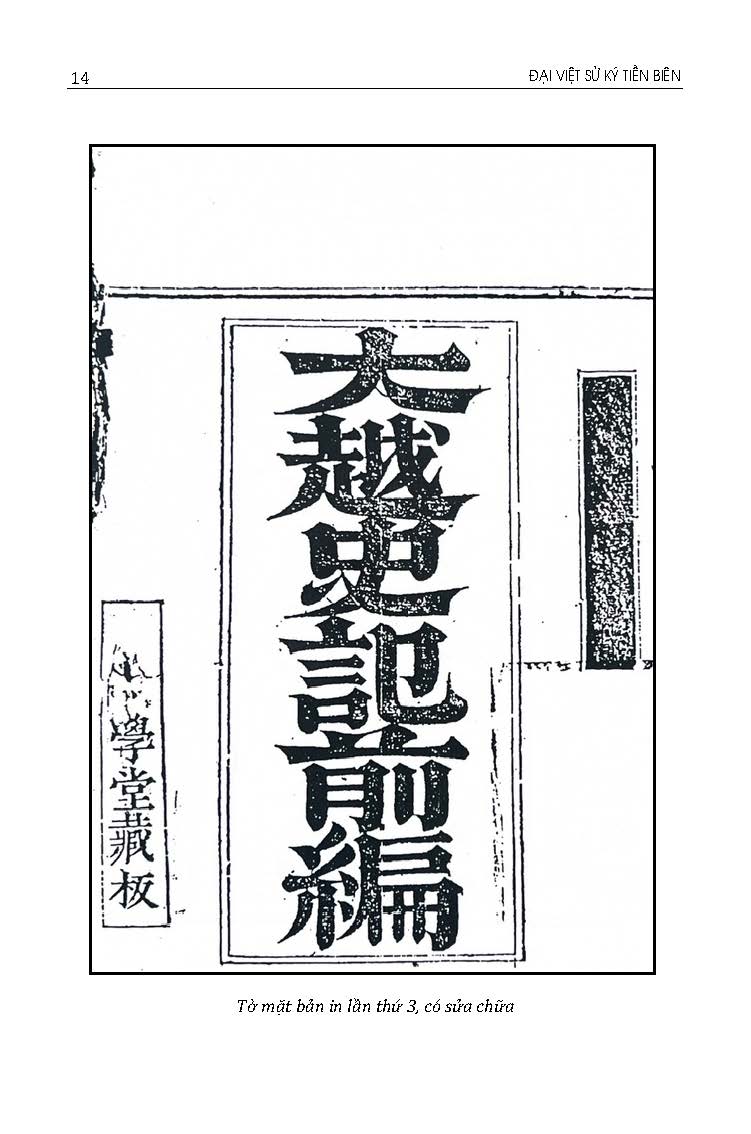 14
ĐẠI VIỆT SỬ KÝ TIỀN BIÊN
大越史記前編
學堂藏板
Tờ mặt bản in lần thứ 3, có sửa chữa